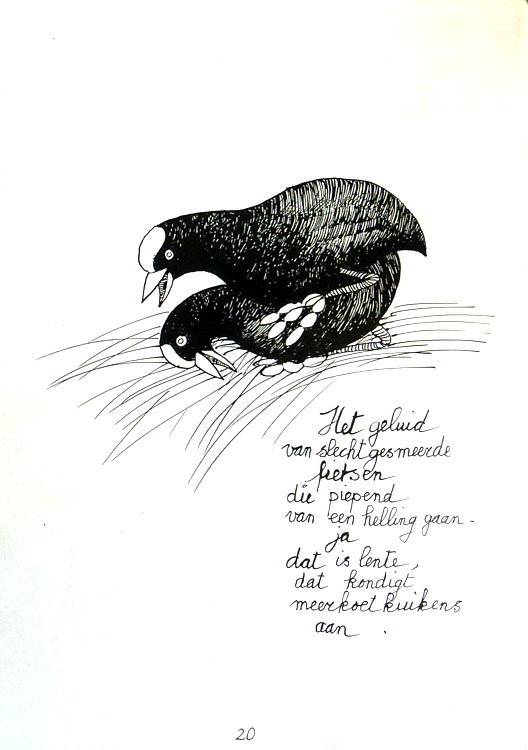 Het geluid
van slecht gesmeerde
fietsen
die piepend
van een helling gaan -
ja
dat is lente,
dat kondigt
meerkoetkuikens
aan .
20